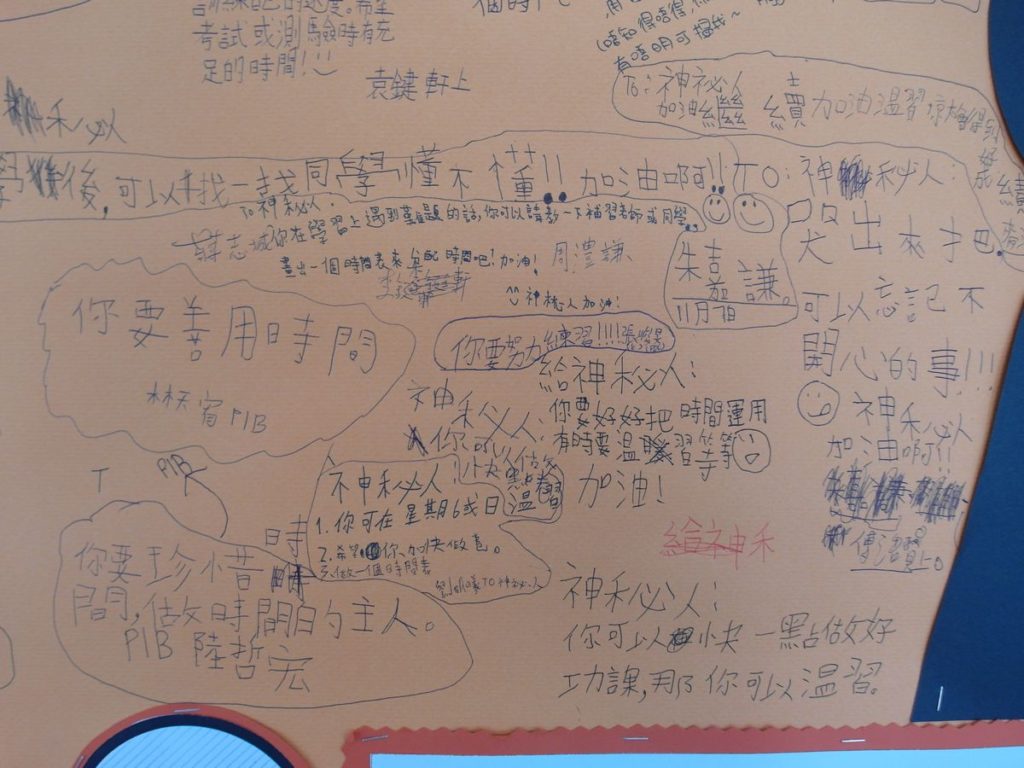 訓練自己的速度。希望
考試或測驗時有充
足的時間!
袁鍵軒上
個時
有唔明可搵我~
To: 神祕人
加油繼續加油溫習
禾必人
學後,可以找一找同學懂不懂!!加油啊!!
To 神秘人:
你在學習上遇到難題的話,你可以請教一下補習老師或同學,
畫出一個時間表來分配時間吧!加油!
周澧謙
神秘人加油!
朱嘉謙。
11月7日
TO:神秘人:
哭出來才吧,
可以忘記不
開心的事!!!
神秘人
加油啊!!
傅溫習上。
你要善用時間
P1B
你要努力練習!!!!
給神秘人:
你要好好把時間運用
有時要溫習等等
加油!
神秘人:
你可以
快點做
溫習
神秘人:
1. 你可在星期6或日
2. 希望你加快做卷。
3. 做一個時間表
TO神秘人
P1B
你要珍惜時
間,做時間的主人。
P1B 陸哲宏
給神禾
神秘人:
你可以快一點做好
功課,那你可以溫習。